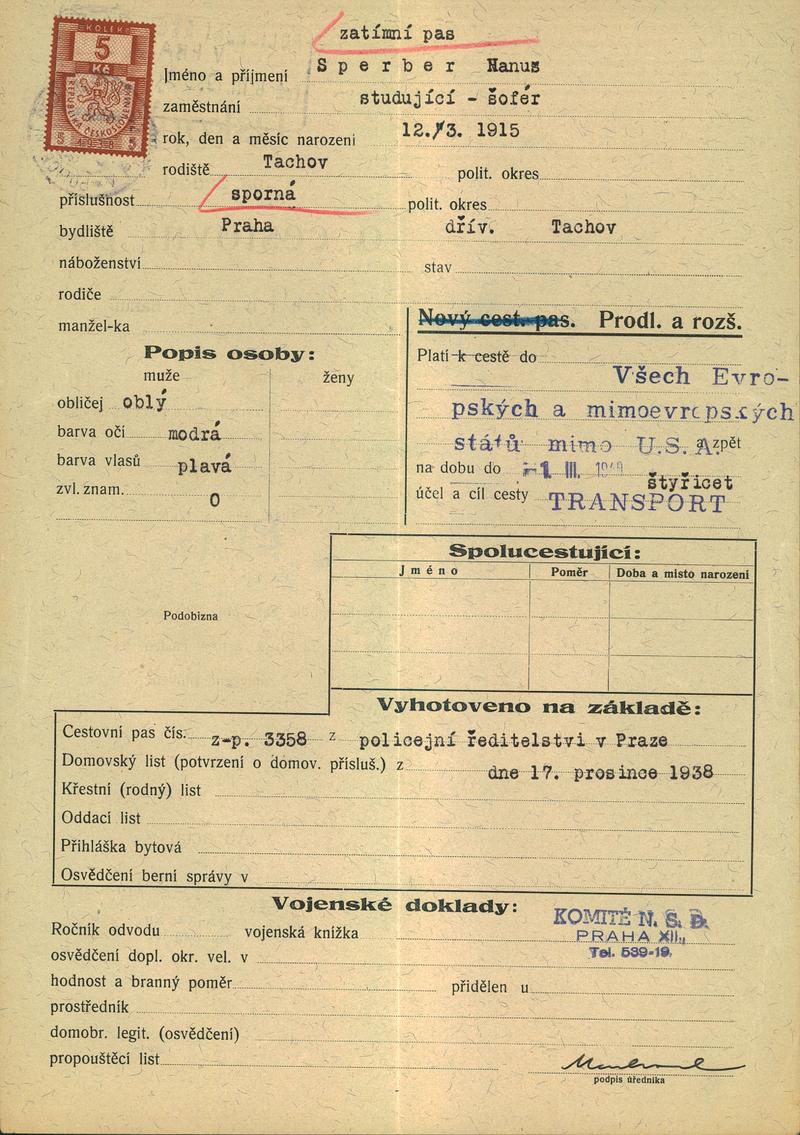 zatímní pas
KOLEK
5
Kč
REPUBLIKA ČESKOSLOVENSKÁ
5 1938 5
Jméno a příjmení Sperber Hanus
zaměstnání studující - šofér
rok, den a měsíc narození 12./3. 1915
rodiště Tachov polit. okres
příslušnost sporná polit. okres
bydliště Praha dřív. Tachov
náboženství stav
rodiče
manžel-ka
Nový cest. pas. Prodl. a rozš.
Popis osoby:
muže ženy
obličej oblý
barva očí modrá
barva vlasů plavá
zvl. znam. 0
Platí k cestě do
Všech Evro-
pských a mimoevropských
států mimo U.S.A. zpět
na dobu do 1 III.
štyřicet
účel a cíl cesty TRANSPORT
Podobizna
Spolucestující:
Jméno Poměr Doba a místo narození
Vyhotoveno na základě:
Cestovní pas čís. z-p. 3358 z policejní ředitelství v Praze
Domovský list (potvrzení o domov. přísluš.) z dne 17. prosince 1938
Křestní (rodný) list
Oddací list
Přihláška bytová
Osvědčení berní správy v
Vojenské doklady:
KOMITÉ N. S. D.
PRAHA XII.,
Tel. 539-19.
Ročník odvodu vojenská knížka
osvědčení dopl. okr. vel. v
hodnost a branný poměr přidělen u
prostředník
domobr. legit. (osvědčení)
propouštěcí list
podpis úředníka